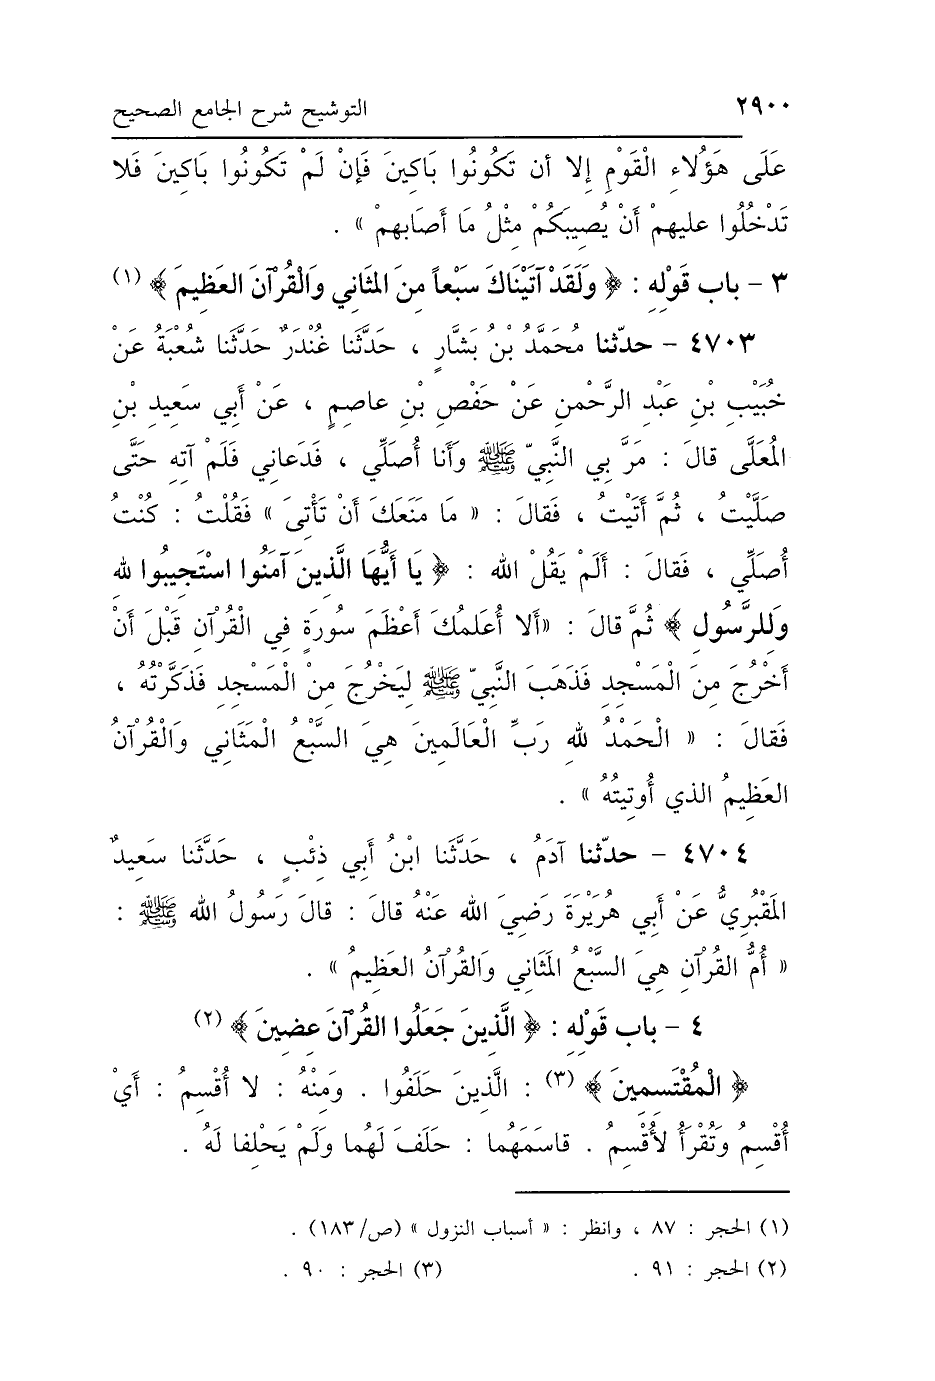 ٢٩٠٠ التوشيح شرح الجامع الصحيح
عَلَى هَؤُلاءِ الْقَوْمِ إلا أن تَكُونُوا بَاكِينَ فَإنْ لَمْ تَكُونُوا بَاكِينَ فَلا
تَدْخُلُوا عليهمْ أَنْ يُصِيبَكُمْ مِثْلُ مَا أَصَابهمْ » .
٣ - باب قَوْلِهِ : ﴿ وَلَقَدْ آتَيْنَاكَ سَبْعاً مِنَ المَثَانِي وَالْقُرْآنَ العَظِيمَ ﴾ (١)
٤٧٠٣ - حدّثنا مُحَمَّدُ بْنُ بَشَّارٍ ، حَدَّثَنَا غُنْدَرٌ حَدَّثَنَا شُعْبَةُ عَنْ
خُبَيْبِ بْنِ عَبْدِ الرَّحْمنِ عَنْ حَفْصِ بْنِ عاصِمٍ ، عَنْ أَبي سَعِيدِ بْنِ
المُعَلَّى قالَ : مَرَّ بِي النَّبيّ ﷺ وَأَنا أُصَلِّي ، فَدَعانِي فَلَمْ آتِهِ حَتَّى
صَلَّيْتُ ، ثُمَّ أَتَيْتُ ، فَقالَ : « مَا مَنَعَكَ أَنْ تَأْتىَ » فَقُلْتُ : كُنْتُ
أُصَلِّي ، فَقالَ : أَلَمْ يَقُلْ الله : ﴿ يَا أَيُّهَا الَّذِينَ آمَنُوا اسْتَجِيبُوا للهِ
وَلِلرَّسُولِ ﴾ ثُمَّ قالَ : «أَلا أُعَلِمُكَ أَعْظَمَ سُورَةٍ فِي الْقُرْآنِ قَبْلَ أَنْ
أَخْرُجَ مِنَ الْمَسْجِدِ فَذَهَبَ النَّبيّ ﷺ لِيَخْرُجَ مِنْ الْمَسْجِدِ فَذَكَّرْتُهُ ،
فَقالَ : « الْحَمْدُ للهِ رَبِّ الْعَالَمِينَ هِيَ السَّبْعُ الْمَثَانِي وَالْقُرْآنُ
العَظِيمُ الذي أُوتِيتُهُ » .
٤٧٠٤ - حدّثنا آدَمُ ، حَدَّثَنَا ابْنُ أَبي ذِئْبٍ ، حَدَّثَنا سَعِيدٌ
المَقْبُرِيُّ عَنْ أَبي هُرَيْرَةَ رَضِيَ الله عَنْهُ قالَ : قالَ رَسُولُ الله ﷺ :
« أُمُّ القُرْآنِ هِيَ السَّبْعُ المَثَانِي وَالقُرْآنُ العَظِيمُ » .
٤ - باب قَوْلِهِ : ﴿ الَّذِينَ جَعَلُوا القُرْآنَ عضِينَ ﴾ (٢)
﴿ الْمُقْتَسِمِينَ ﴾ (٣) : الَّذِينَ حَلَفُوا . وَمِنْهُ : لا أُقْسِمُ : أَيْ
أُقْسِمُ وَتُقْرَأُ لأُقْسِمُ . قاسَمَهُما : حَلَفَ لَهُما وَلَمْ يَحْلِفا لَهُ .
(١) الحجر : ٨٧ ، وانظر : « أسباب النزول » (ص/١٨٣) .
(٢) الحجر : ٩١ . (٣) الحجر : ٩٠ .